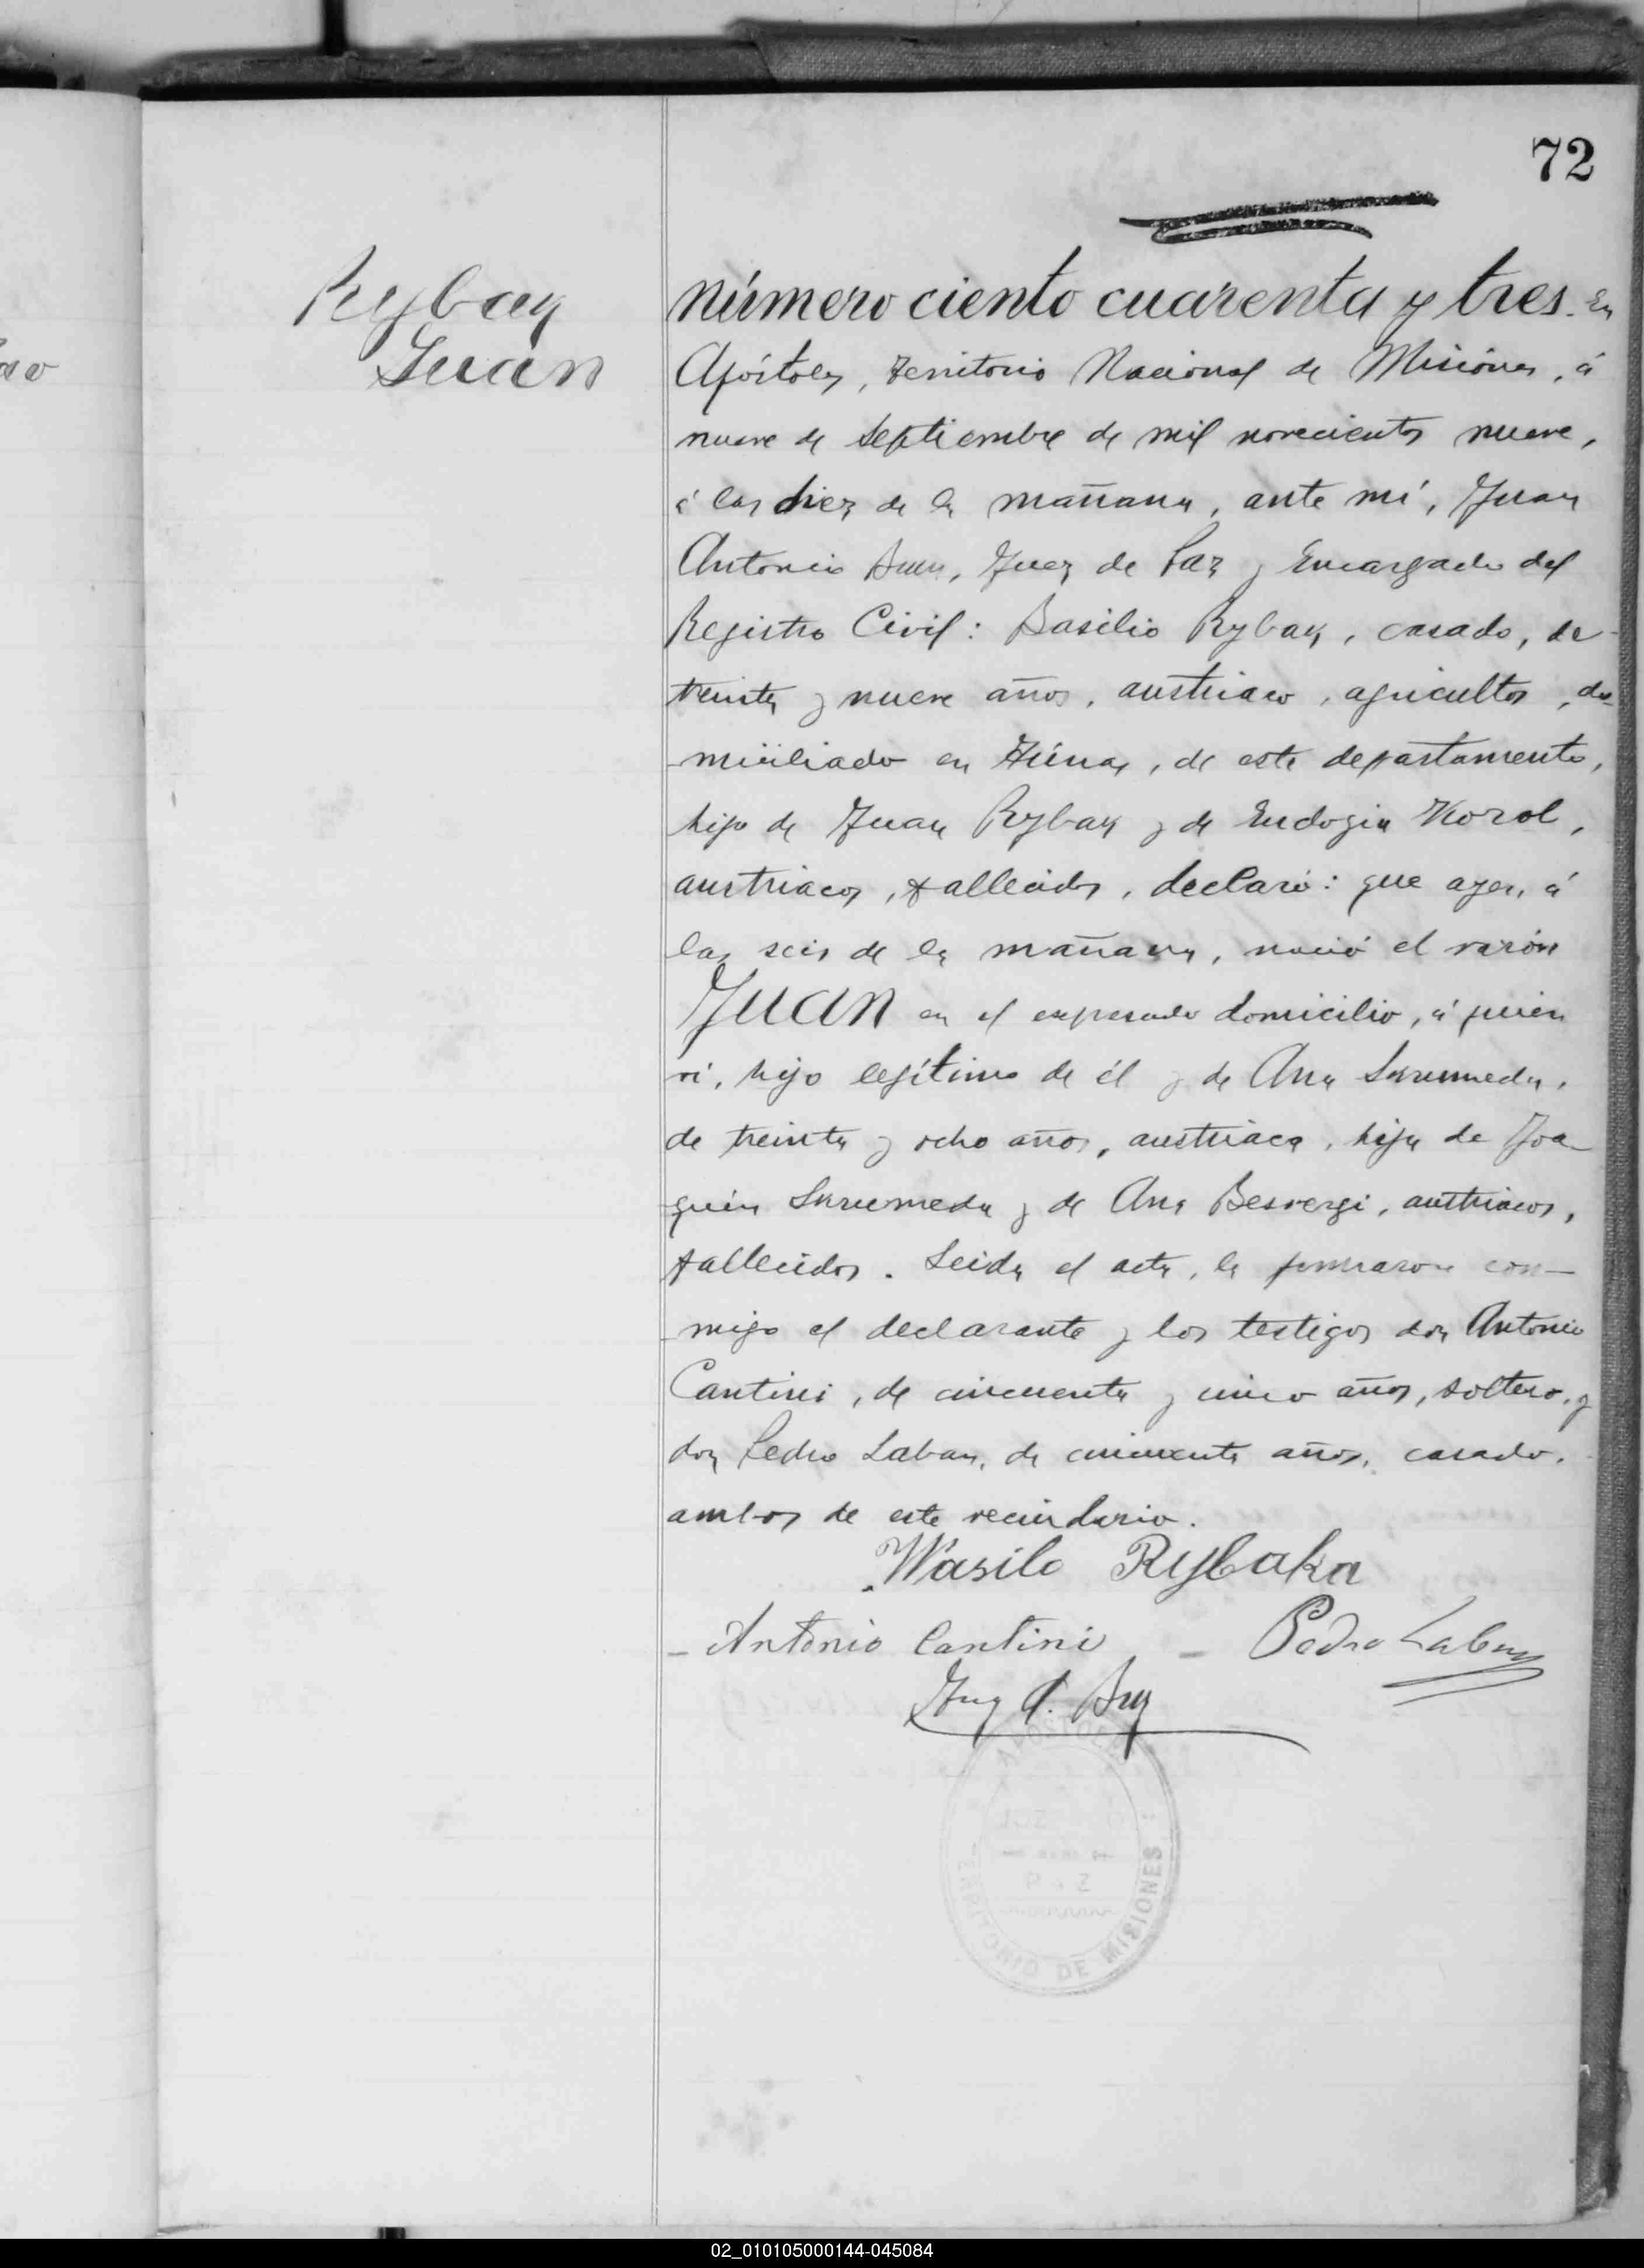 72
Rybak
Juan
Número ciento cuarenta y tres. En
Apóstoles, Territorio Nacional de Misiones, á
nueve de Septiembre de mil novecientos nueve,
á las diez de la mañana, ante mí, Juan
Antonio, Juez de Paz y Encargado del
Registro Civil: Basilio Rybak, casado, de
treinta y nueve años, austriaco, agricultor, do-
miciliado en, de este departamento,
hijo de Juan Rybak y de Eudogia Korol,
austriacos, fallecidos, declaró: que ayer, á
las seis de la mañana, nació el varón
JUAN en el expresado domicilio, á quien
ví, hijo legítimo de él y de Ana
de treinta y ocho años, austriaca, hija de Joa-
quín y de Ana, austriacos,
fallecidos. Leida el acta, la firmaron con-
migo el declarante y los testigos don Antonio
Cantini, de cincuenta y cinco años, soltero, y
don Pedro Laban, de cincuenta años, casado,
ambos de este vecindario.
Wasilo Rybaka
- Antonio Cantini - Pedro Laban
TERRITORIO DE MISIONES
02_010105000144-045084